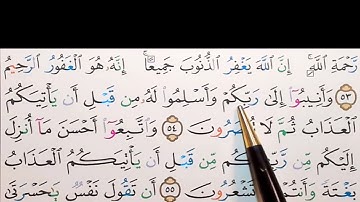 رَّحْمَةِ ٱللَّهِ ۚ إِنَّ ٱللَّهَ يَغْفِرُ ٱلذُّنُوبَ جَمِيعًا ۚ إِنَّهُۥ هُوَ ٱلْغَفُورُ ٱلرَّحِيمُ
٥٣ وَأَنِيبُوٓا۟ إِلَىٰ رَبِّكُمْ وَأَسْلِمُوا۟ لَهُۥ مِن قَبْلِ أَن يَأْتِيَكُمُ
ٱلْعَذَابُ ثُمَّ لَا تُنصَرُونَ ٥٤ وَٱتَّبِعُوٓا۟ أَحْسَنَ مَآ أُنزِلَ
إِلَيْكُم مِّن رَّبِّكُم مِّن قَبْلِ أَن يَأْتِيَكُمُ ٱلْعَذَابُ
بَغْتَةً وَأَنتُمْ لَا تَشْعُرُونَ ٥٥ أَن تَقُولَ نَفْسٌ يَٰحَسْرَتَىٰ